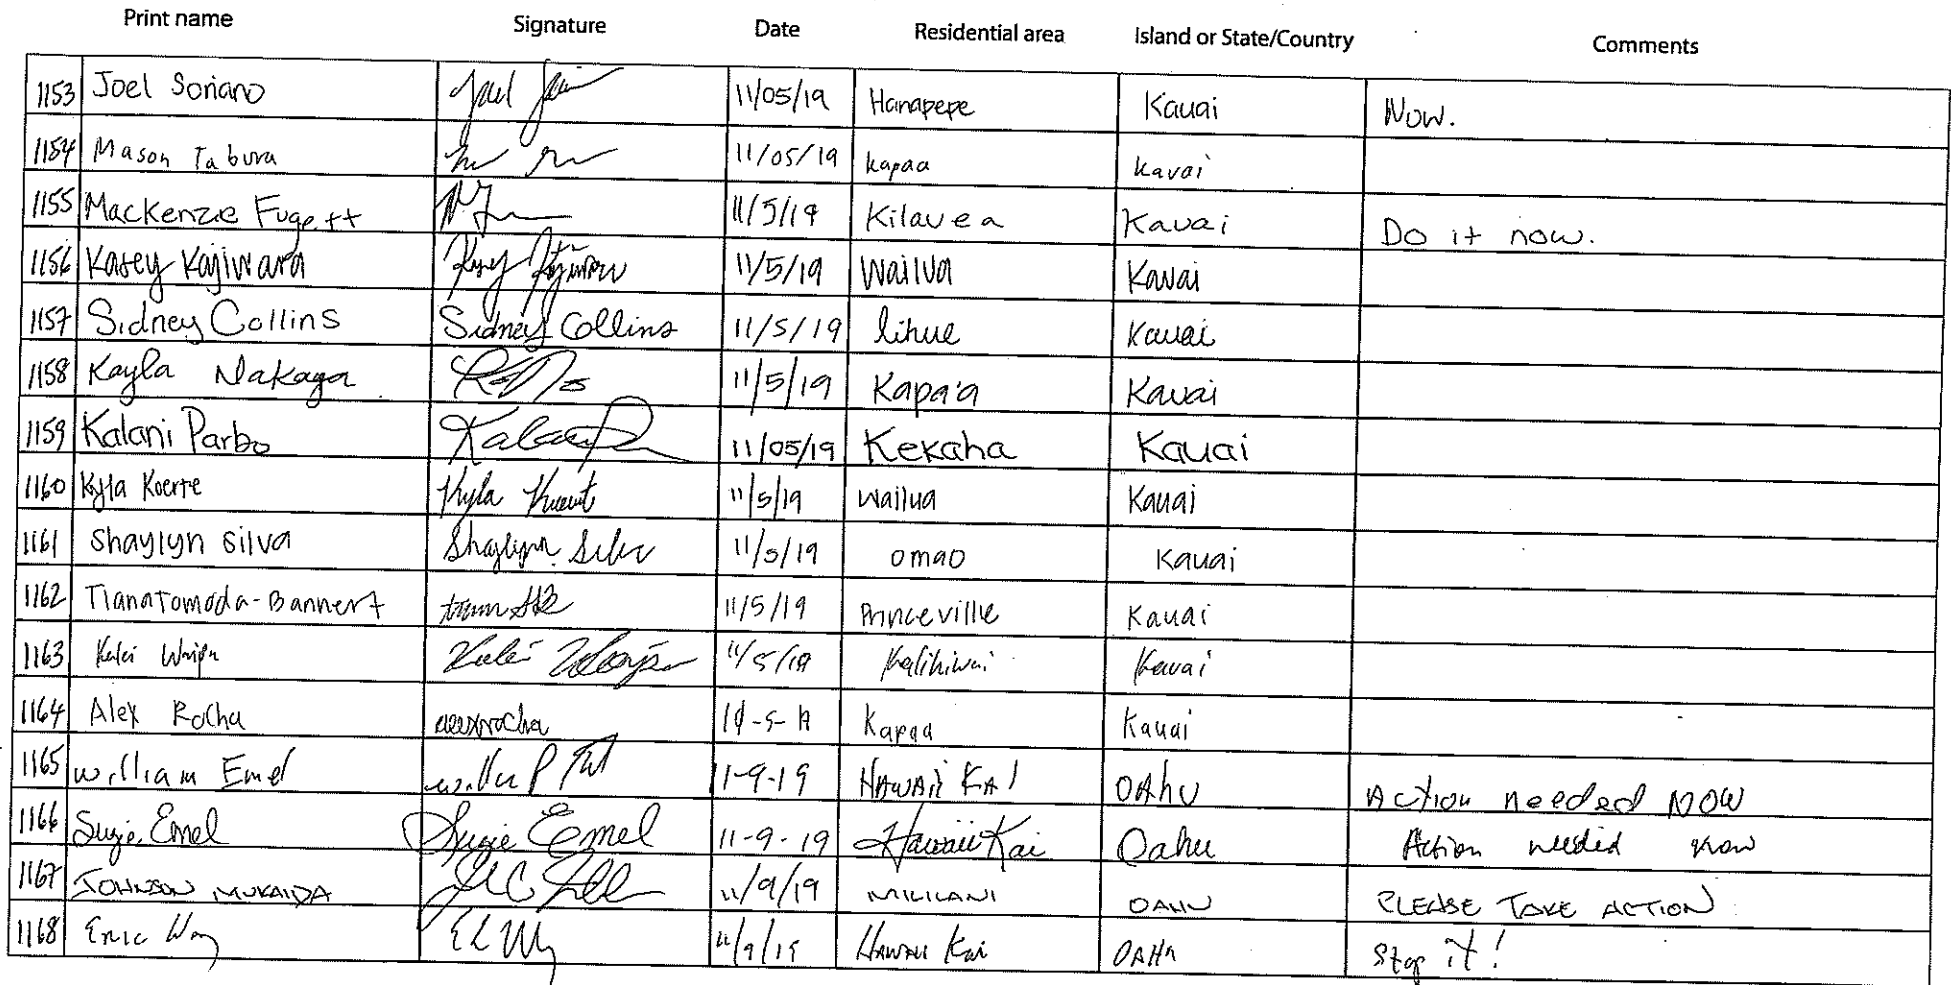 Print name Signature Date Residential area Island or State/Country Comments
1153 Joel Soriano 11/05/19 Hanapepe Kauai Now.
1154 Mason Tabura 11/05/19 Kapaa Kauai
1155 Mackenzie Fugett 11/5/19 Kilauea Kauai Do it now.
1156 Kasey Kajiwara 11/5/19 Wailua Kauai
1157 Sidney Collins Sidney Collins 11/5/19 lihue Kauai
1158 Kayla Nakaga 11/5/19 Kapa'a Kauai
1159 Kalani Parbo 11/05/19 Kekaha Kauai
1160 Kyla Koerte Kyla 11/5/19 Wailua Kauai
1161 Shaylyn Silva Shaylynn Silva 11/5/19 omao Kauai
1162 Tiana Tomoda-Bannert 11/5/19 Princeville Kauai
1163 11/5/19 Kalihiwai Kauai
1164 Alex Rocha alexrocha Kapaa Kauai
1165 William Emel 11-9-19 HAWAII KAI OAHU Action needed NOW
1166 Suzie Emel Suzie Emel 11-9-19 Hawaii Kai Oahu Action needed now
1167 JOHNSON MUKAIDA 11/9/19 MILILANI OAHU PLEASE TAKE ACTION
1168 Eric 11/9/19 HAWAII Kai OAHU Stop it!